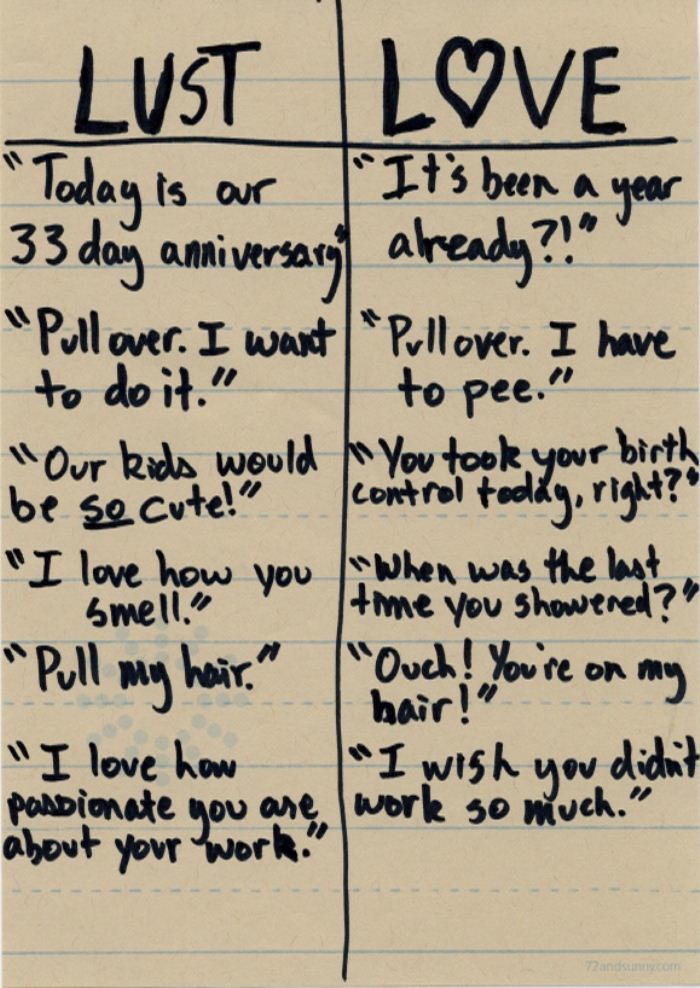 LUST
"Today is our
33 day anniversary"
"Pull over. I want
to do it."
"Our kids would
be so cute!"
"I love how you
smell."
"Pull my hair."
"I love how
passionate you are
about your work."
LOVE
"It's been a year
already?!"
"Pull over. I have
to pee."
"You took your birth
control today, right?"
"When was the last
time you showered?"
"Ouch! You're on my
hair!"
"I wish you didn't
work so much."
72andsunny.com